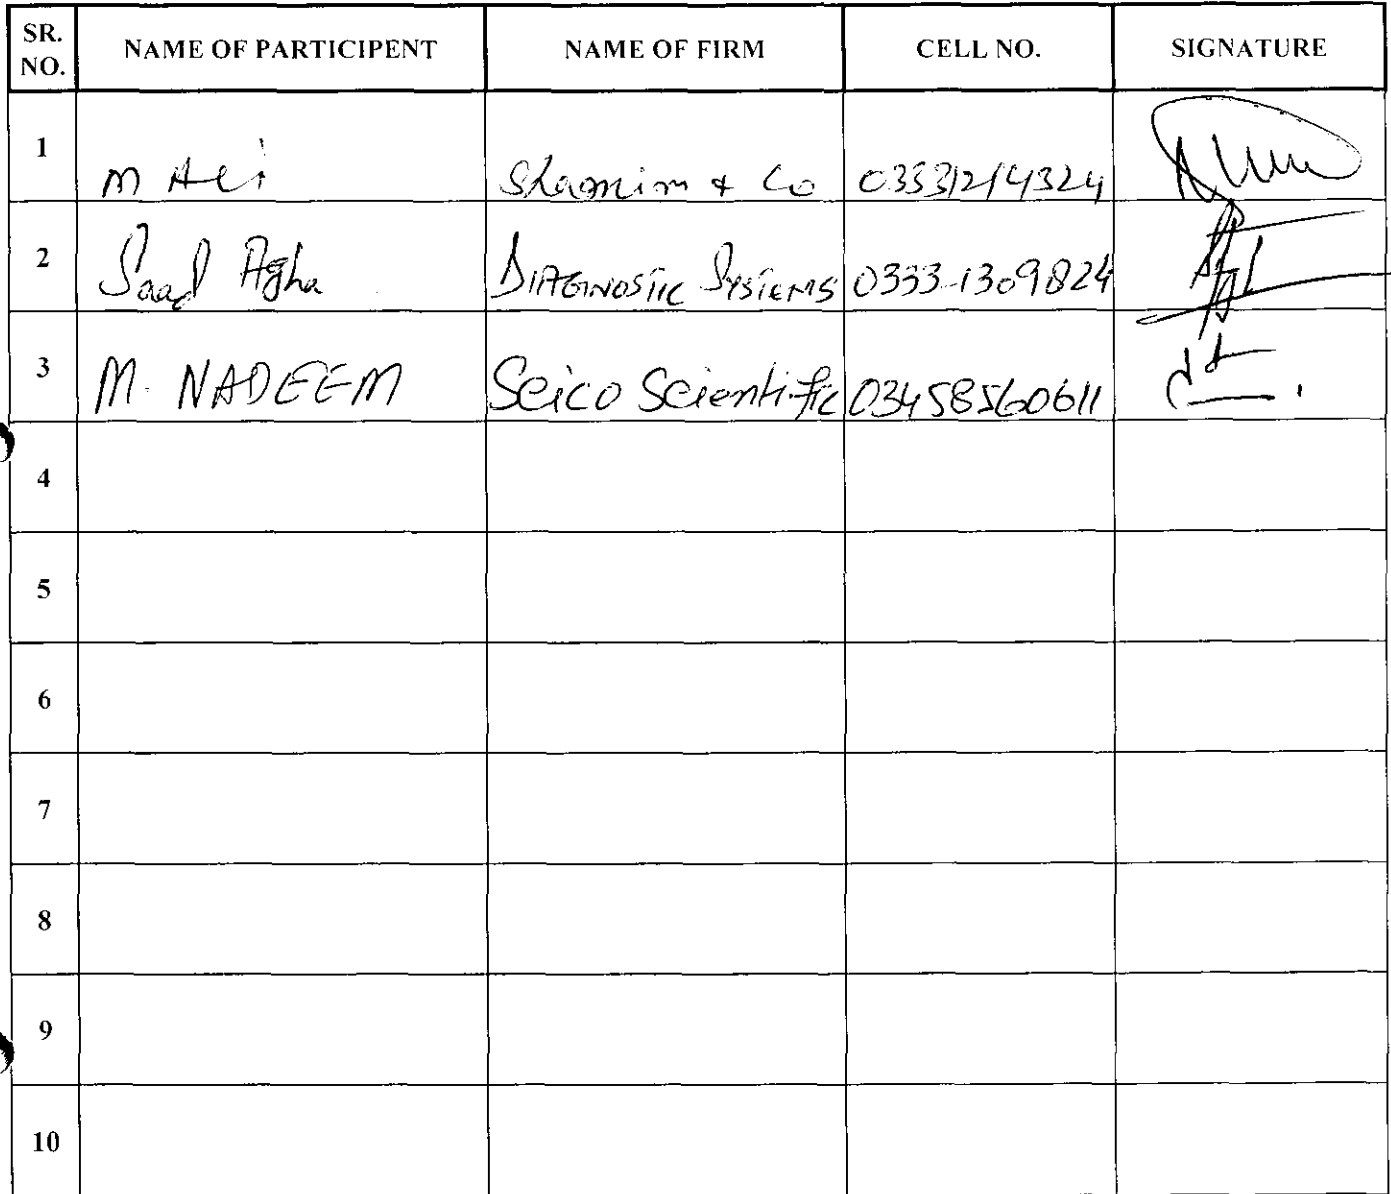 SR. NO. NAME OF PARTICIPENT NAME OF FIRM CELL NO. SIGNATURE
1 M Ali Shamim & Co 03331214324
2 Saad Agha DIAGNOSTIC SYSTEMS 0333-1309824
3 M. NADEEM Scico Scientific 03458560611
4
5
6
7
8
9
10